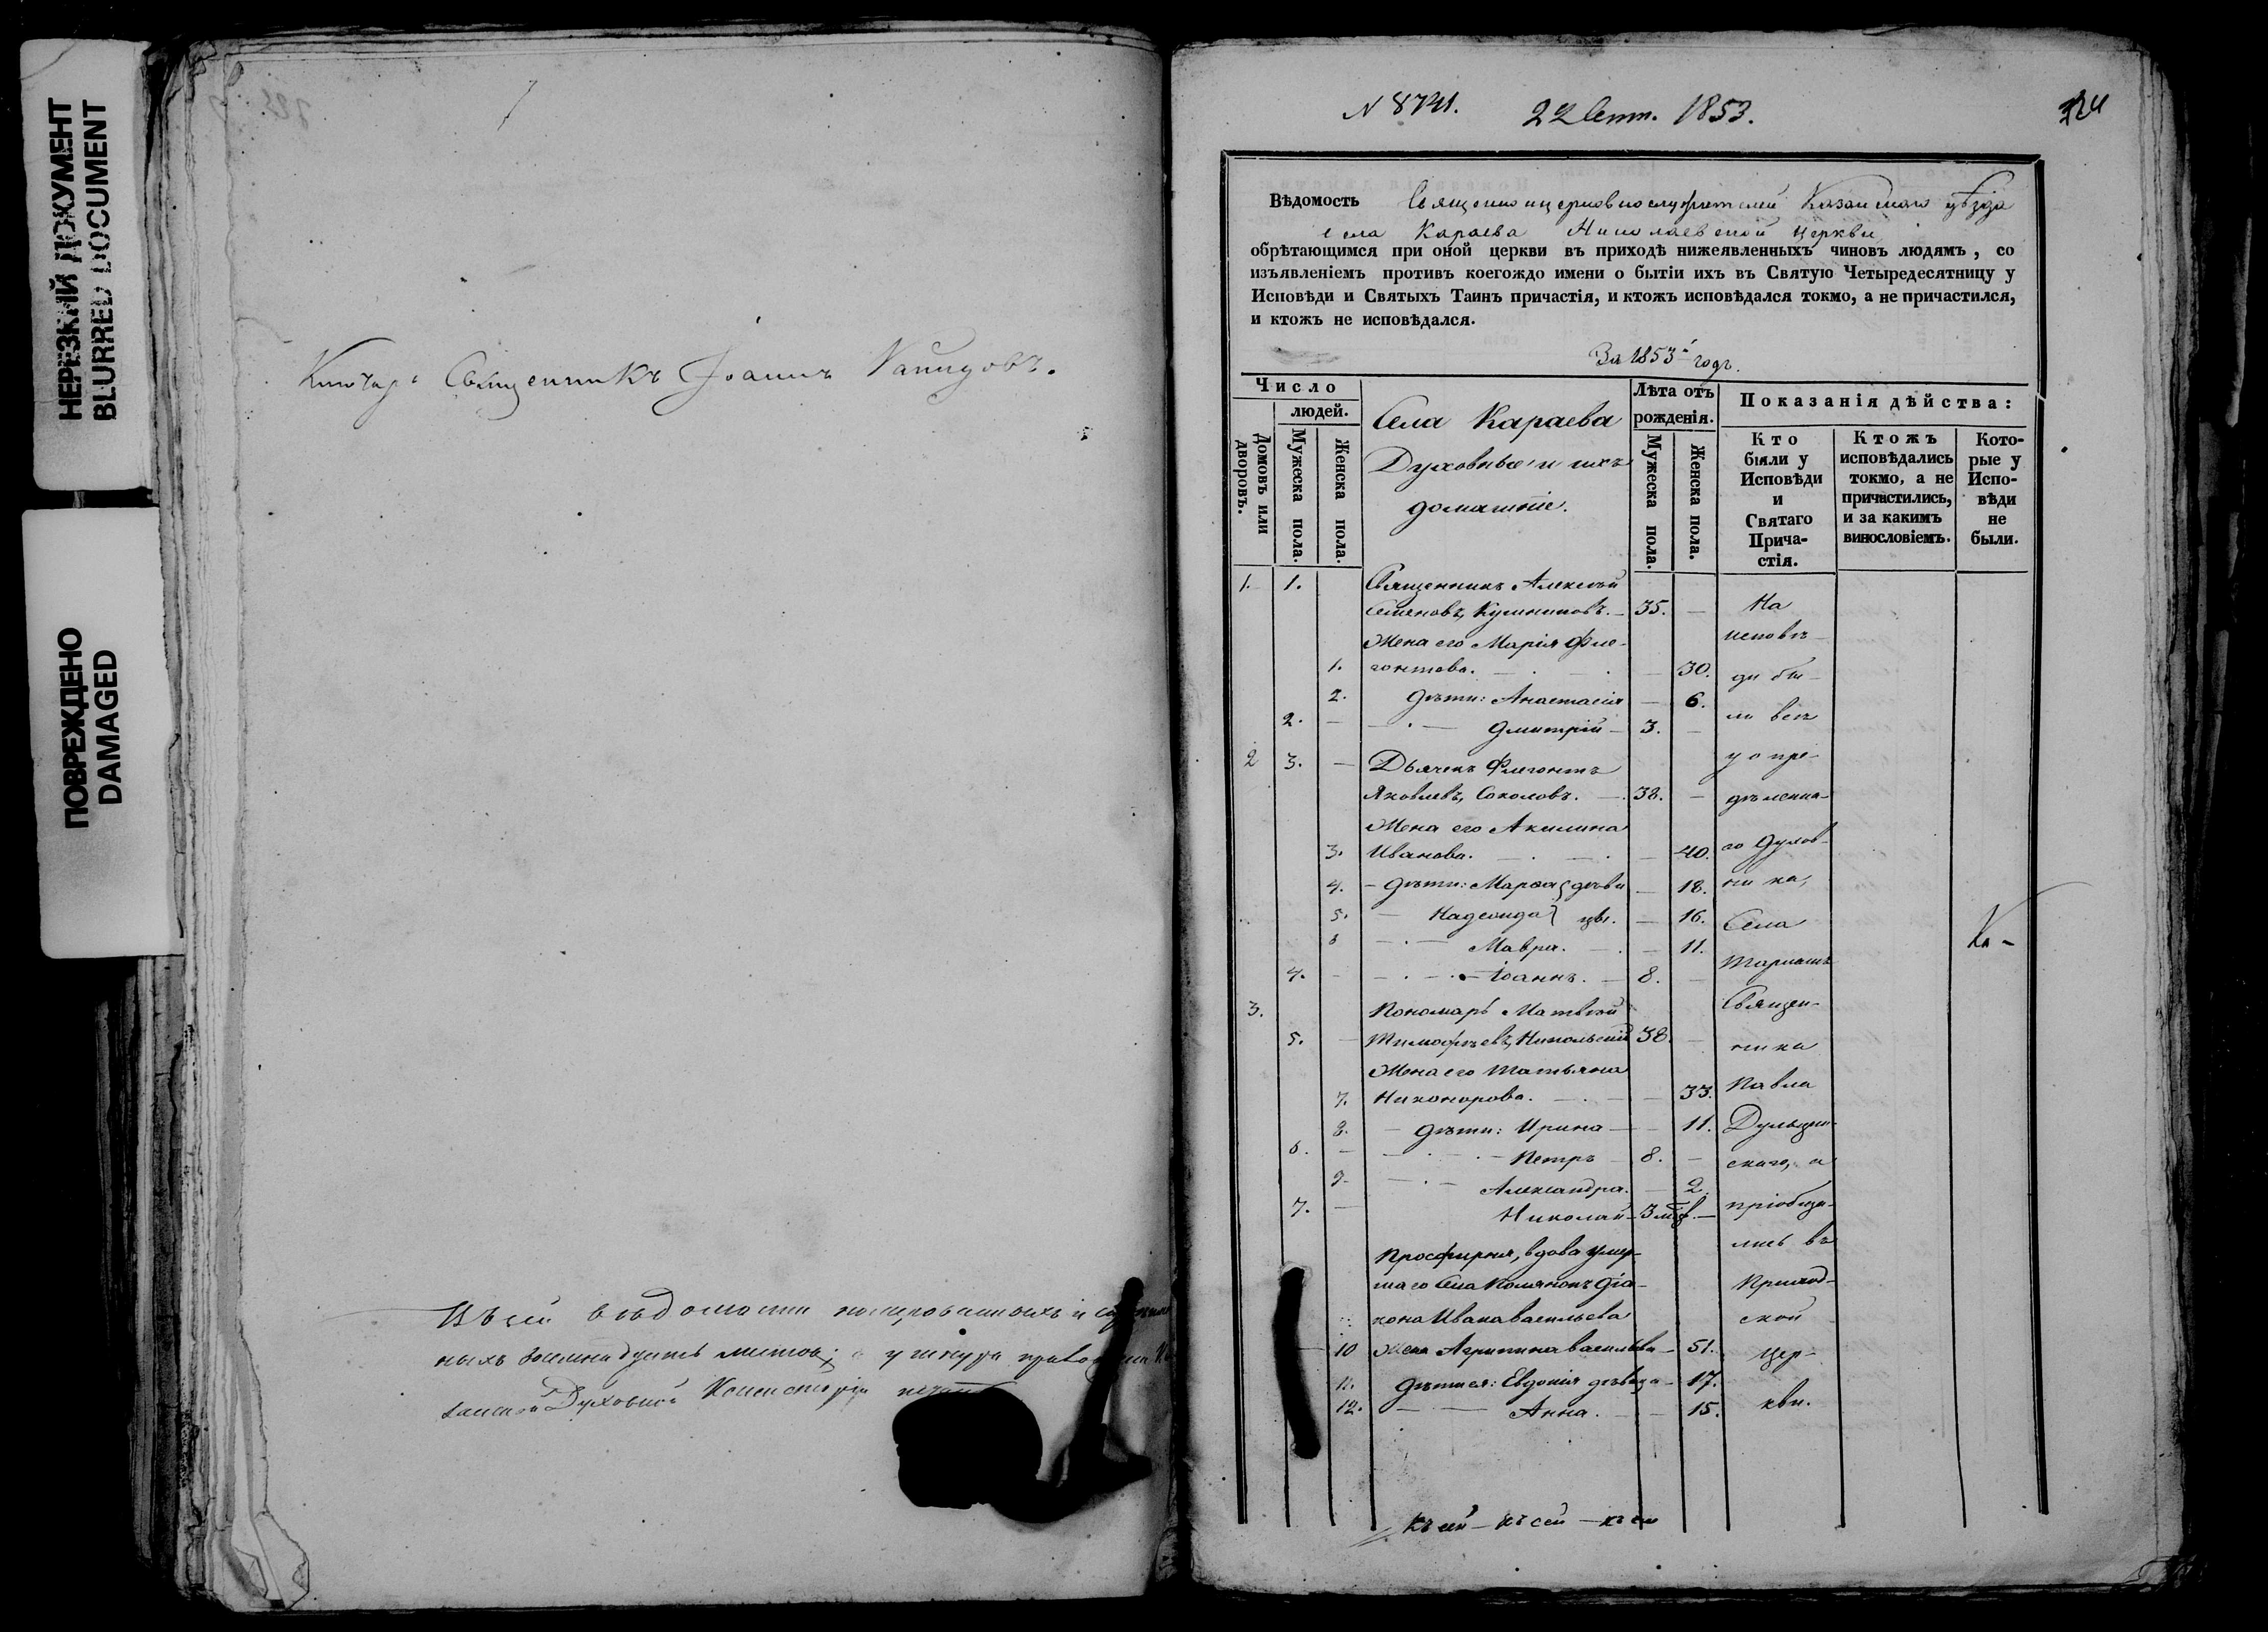 НЕРЕЗКИЙ ДОКУМЕНТ
BLURRED DOCUMENT
ПОВРЕЖДЕНО
DAMAGED
Ключарь Священникъ Іоаннъ
Въ сей вѣдомости
ныхъ листов;
Духовной Консисторіи
N 8741. 22 Сент. 1853.
Вѣдомость Священноцерковнослужителей Казанскаго уѣзда
села Караева Николаевской церкви
обрѣтающимся при оной церкви въ приходѣ нижеявленныхъ чиновъ людямъ, со
изъявленіемъ противъ коегождо имени о бытіи ихъ въ Святую Четыредесятницу у
Исповѣди и Святыхъ Таинъ причастія, и ктожъ исповѣдался токмо, а не причастился,
и ктожъ не исповѣдался.
За 1853й годъ.
Число
людей.
Домовъ или дворовъ.
Мужеска пола.
Женска пола.
Села Караева
Духовные и ихъ
домашніе.
Лѣта отъ рожденія.
Мужеска пола.
Женска пола.
Показанія дѣйства:
Кто были у Исповѣди и Святаго Прича-стія.
Ктожъ исповѣдались токмо, а не причастились, и за какимъ винословіемъ.
Кото-рые у Испо-вѣди не были.
1. 1. Священникъ Алексѣй
Семеновъ, 35. — На
Жена его Марія Фле- исповѣ-
1. гонтова. — 30. ди бы-
2. дѣти: Анастасія — 6.
2. — Дмитрій — 3. — ли всѣ
2 3. — Дьячекъ Флегонтъ у опре-
Яковлевъ, Соколовъ. — 38. — дѣленна-
Жена его Акилина
3. Иванова. — 40. го духов-
4. — дѣти: Марѳа дѣви — 18. ника,
5. — Надежда цы. — 16. Села
6 — Мавра. — 11.
4. — Іоаннъ. — 8. —
3. Пономарь Матвѣй Священ-
5. — Тимофѣевъ, Никольскій 38. — ника
Жена его Татьяна
7. Никонорова. — 33. Павла
8. — дѣти: Ирина — 11.
6. — Петръ 8. — скаго, а
9. — Александра. — 2.
7. — Николай — 3 мѣс. — пріобща-
Просфирня, вдова умер- лись въ
шаго Села діа- Приход-
кона Ивана Васильева ской
10 жена Агрипина Васильева — 51. Цер-
11. дѣти ея: Евдокія дѣвица — 17.
12. — Анна. — 15. кви.
Ка-
Къ сей — къ сей — къ сей